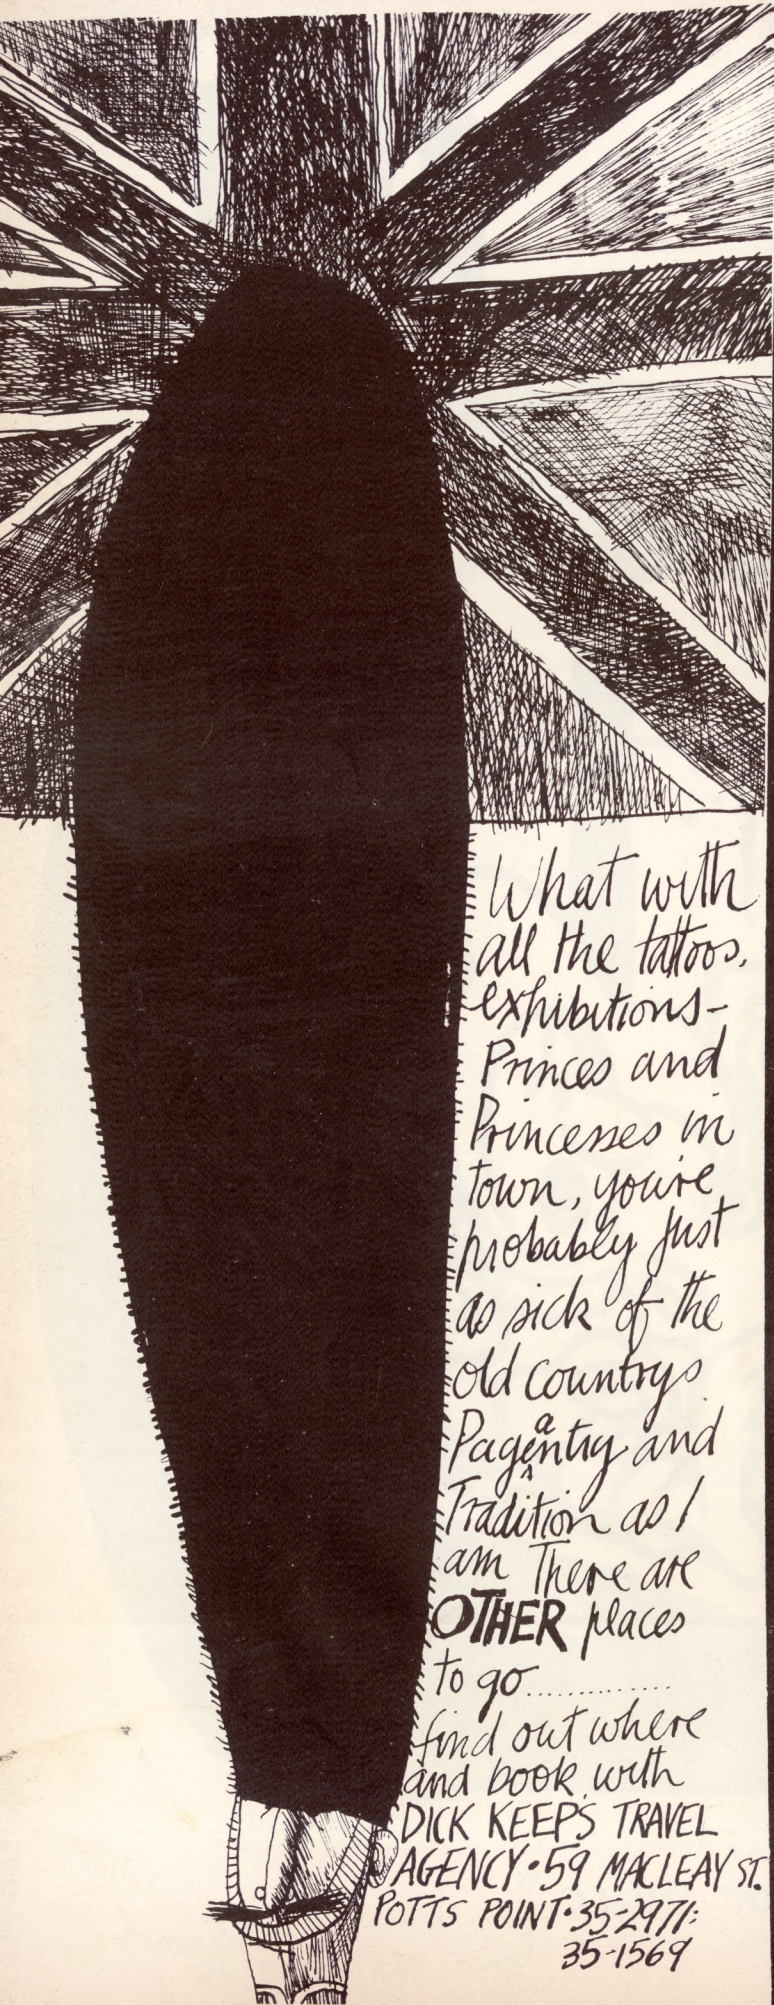 What with
all the tattoos,
exhibitions–
Princes and
Princesses in
town, you're
probably just
as sick of the
old countrys
Pageantry and
Tradition as I
am There are
OTHER places
to go..............
find out where
and book with
DICK KEEPS TRAVEL
AGENCY•59 MACLEAY ST.
POTTS POINT•35-2971:
35-1569